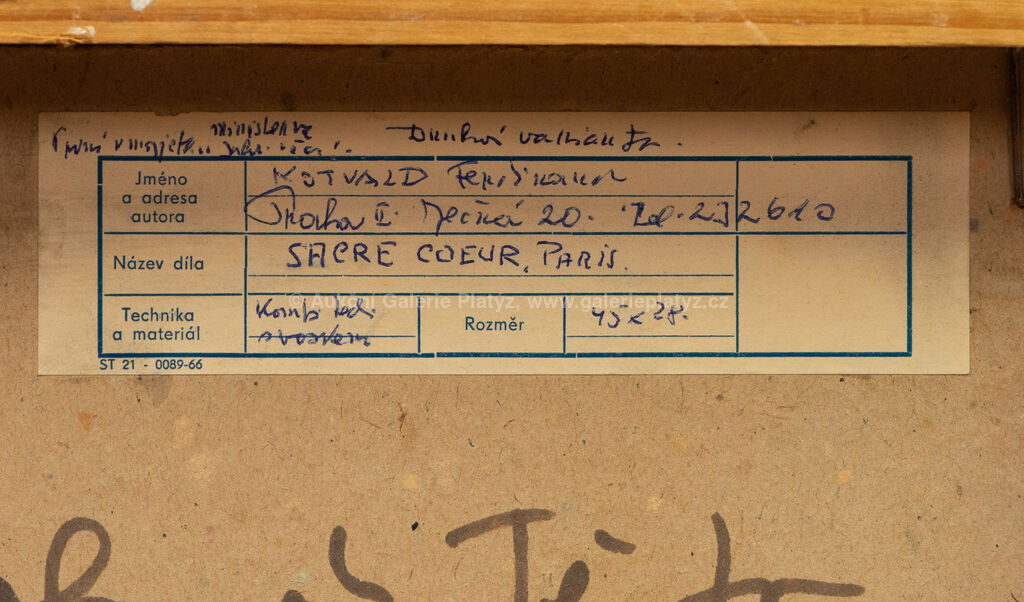 První v majetku ministerva
Druhá varianta.
Jméno a adresa autora
KOTVALD Ferdinand
Praha II. Ječná 20. Tel. 232610
Název díla
SACRE COEUR, PARIS.
© Aukční Galerie Platýz, www.galerieplatyz.cz
Technika a materiál
Komb. tech.
s voskem
Rozměr
45 x 28.
ST 21 - 0089-66